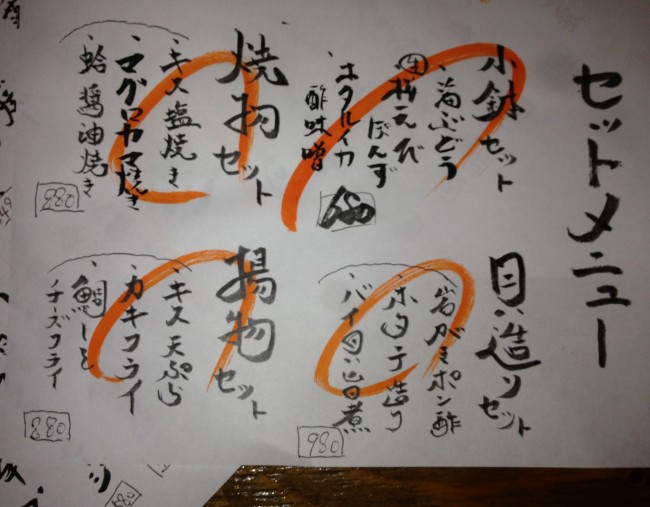 セットメニュー
小鉢セット
・海ぶどう
・生桜えび
ぽんず
・ホタルイカ
酢味噌
貝造りセット
・岩がきポン酢
・ホタテ造り
・バイ貝旨煮
980
焼物セット
・キス塩焼き
・マグロカマ焼き
・蛤醤油焼き
880
揚物セット
・キス天ぷら
・カキフライ
・鯛しそ
チーズフライ
880